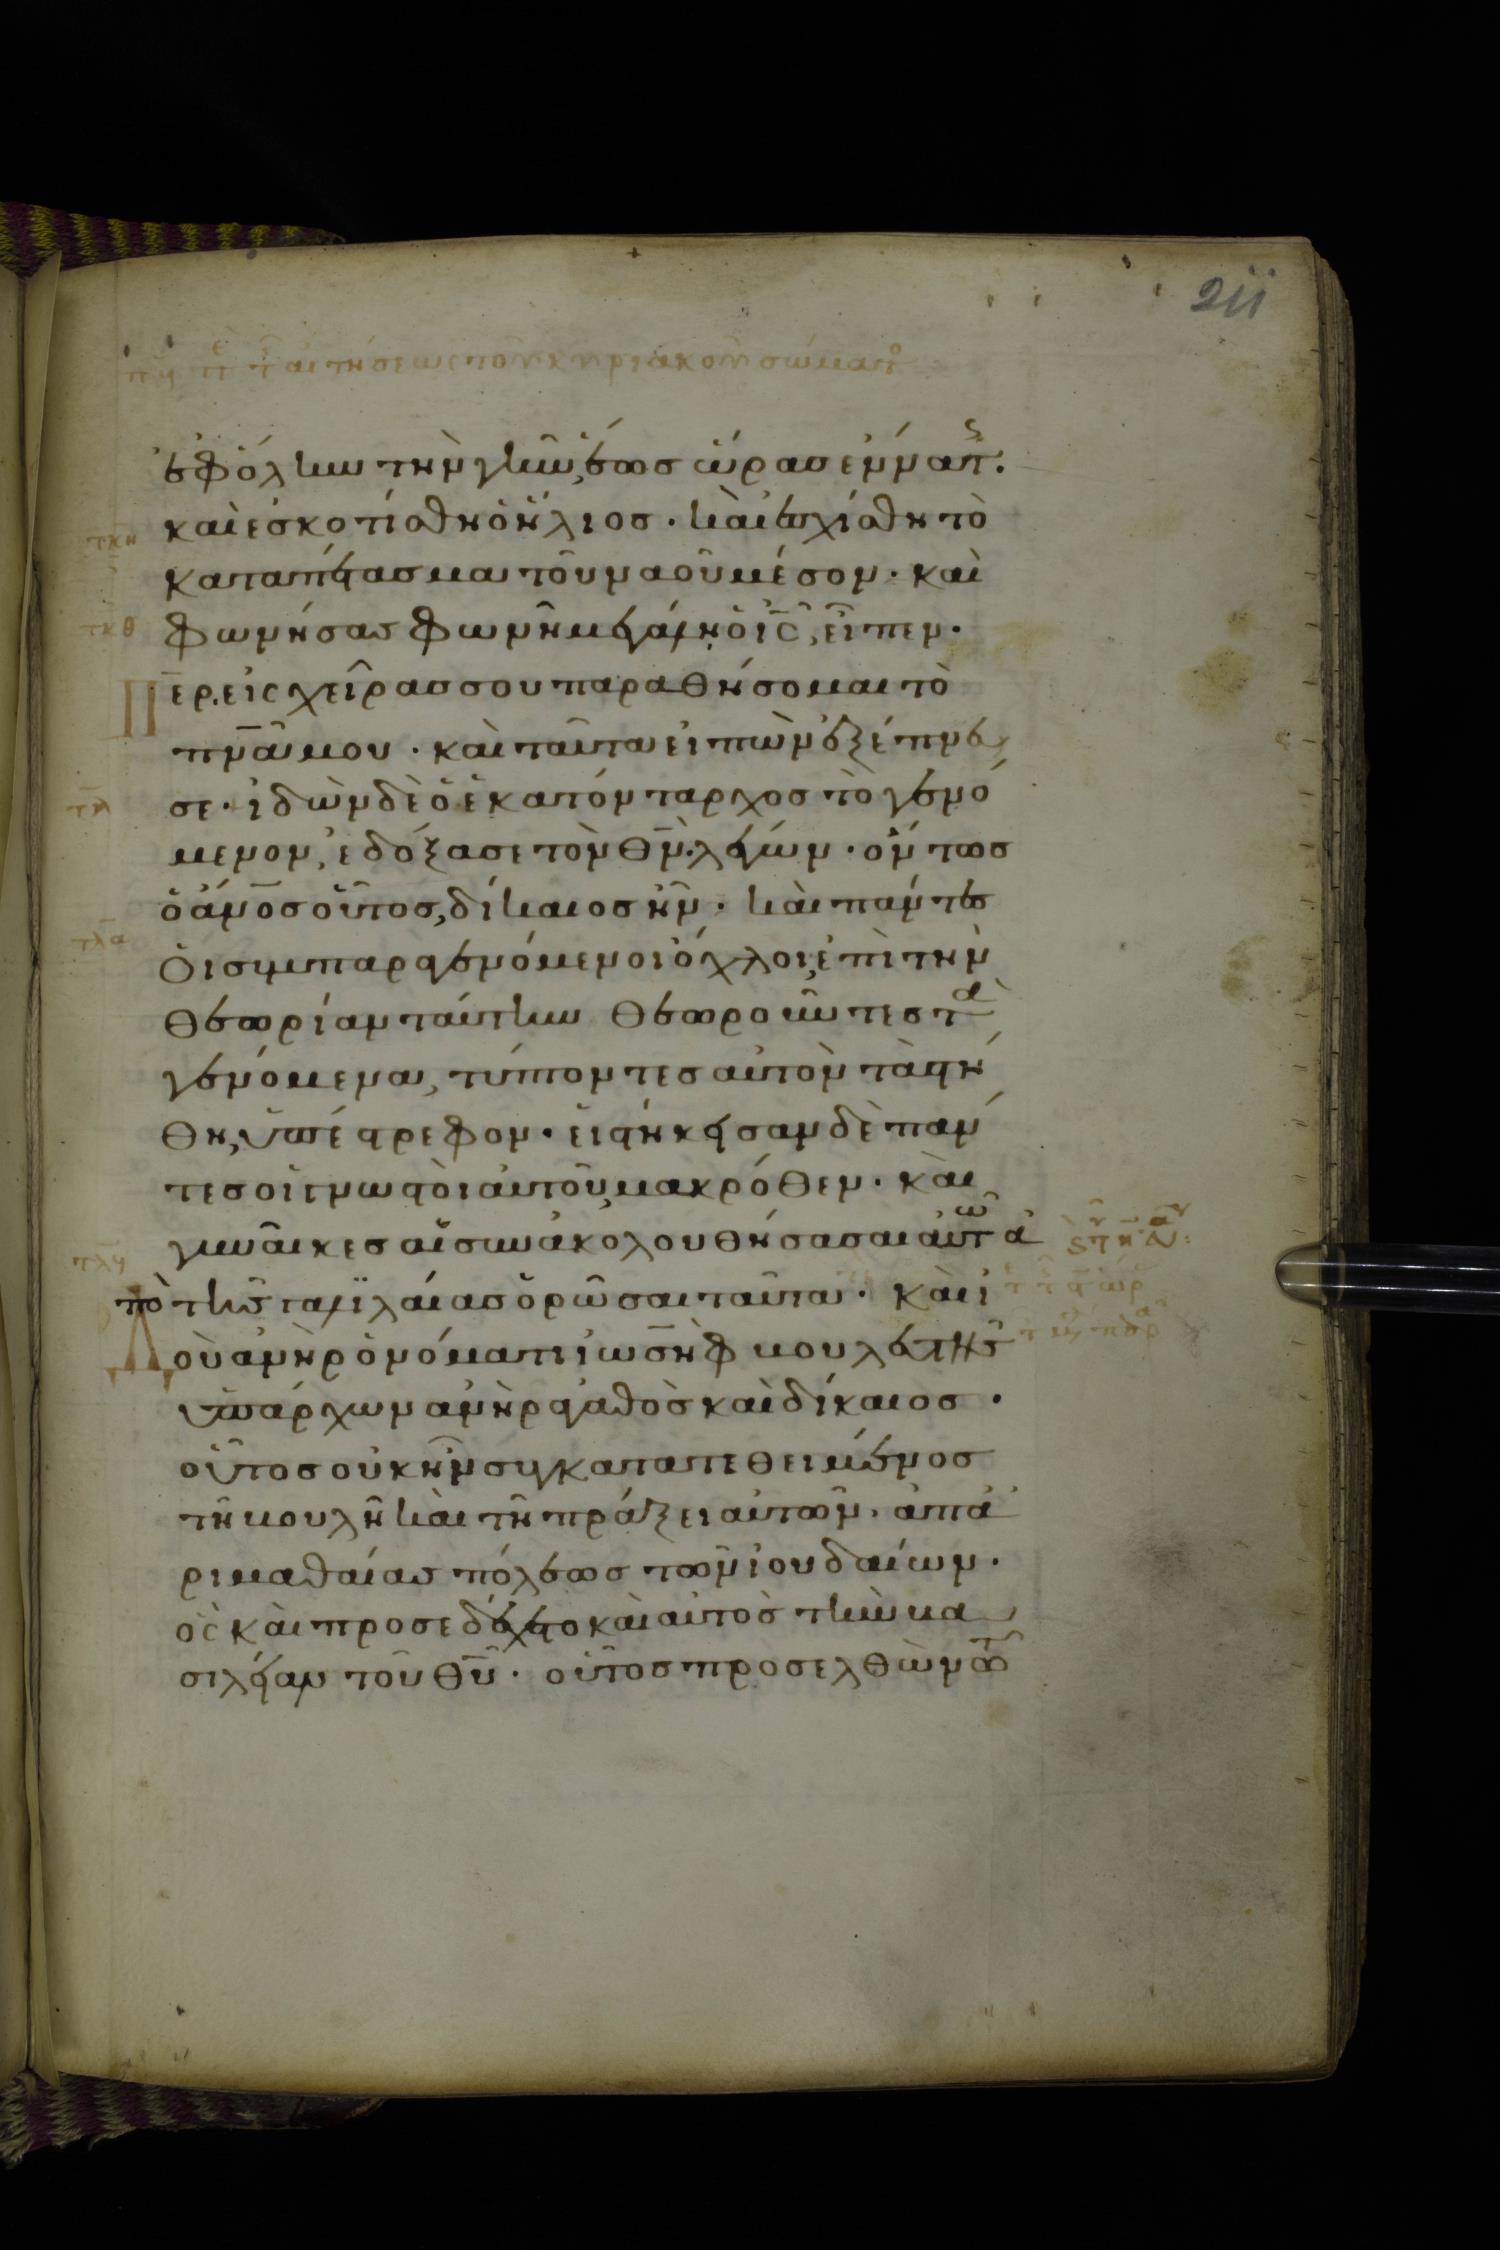 211
πγ π τ αιτήσεως τοῦ κυριακοῦ σώματο
ἐφ ὅλην τὴν γῆν, ἕως ὥρας ἐννάτς.
τκη καὶ ἐσκοτίσθη ὁ ἥλιος. καὶ ἐσχίσθη τὸ
καταπέτασμα τοῦ ναοῦ μέσον. καὶ
τκθ φωνήσας φωνῆ μεγάλη ὁ ι̅ς̅, εἶπεν.
Π̅ερ. εἰς χεῖρας σου παραθήσομαι τὸ
π̅ν̅α̅ μου. καὶ ταῦτα εἰπὼν ἐξέπνευ
τλ σε. ἰδὼν δὲ ὁ ἑκατόνταρχος τὸ γενό
μενον, ἐδόξασε τὸν θ̅ν̅. λέγων. ὄντως
ὁ ἀν̅ο̅ς οὗτος, δίκαιος ἦν. καὶ πάντες
τλα οἱ συμπαραγενόμενοι ὄχλοι, ἐπὶ τὴν
θεωρίαν ταύτην θεωροῦντες τὰ
γενόμενα, τύπτοντες αὐτὸν τὰ στή
θη, ὑπέστρεφον. εἱστήκεσαν δὲ πάν
τες οἱ γνωστοὶ αὐτοῦ μακρόθεν. καὶ
τλγ γυναῖκες αἱ συνακολουθήσασαι αὐτῶ ἀ
πὸ τῆς γαλιλαίας ὁρῶσαι ταῦτα. Καὶ ἰ
Δοὺ ἀνὴρ ὀνόματι ἰωσὴφ βουλευτὴς
ὑπάρχων ἀνὴρ ἀγαθὸς καὶ δίκαιος.
οὗτος οὐκ ἦν συγκατατεθειμένος
τῆ βουλῆ καὶ τῆ πράξει αὐτῶν. ἀπὸ ἀ
ριμαθαίας πόλεως τῶν ἰουδαίων.
ὃς καὶ προσεδέχετο καὶ αὐτὸς τὴν βα
σιλείαν τοῦ θ̅υ̅. οὗτος προσελθὼν τῶ